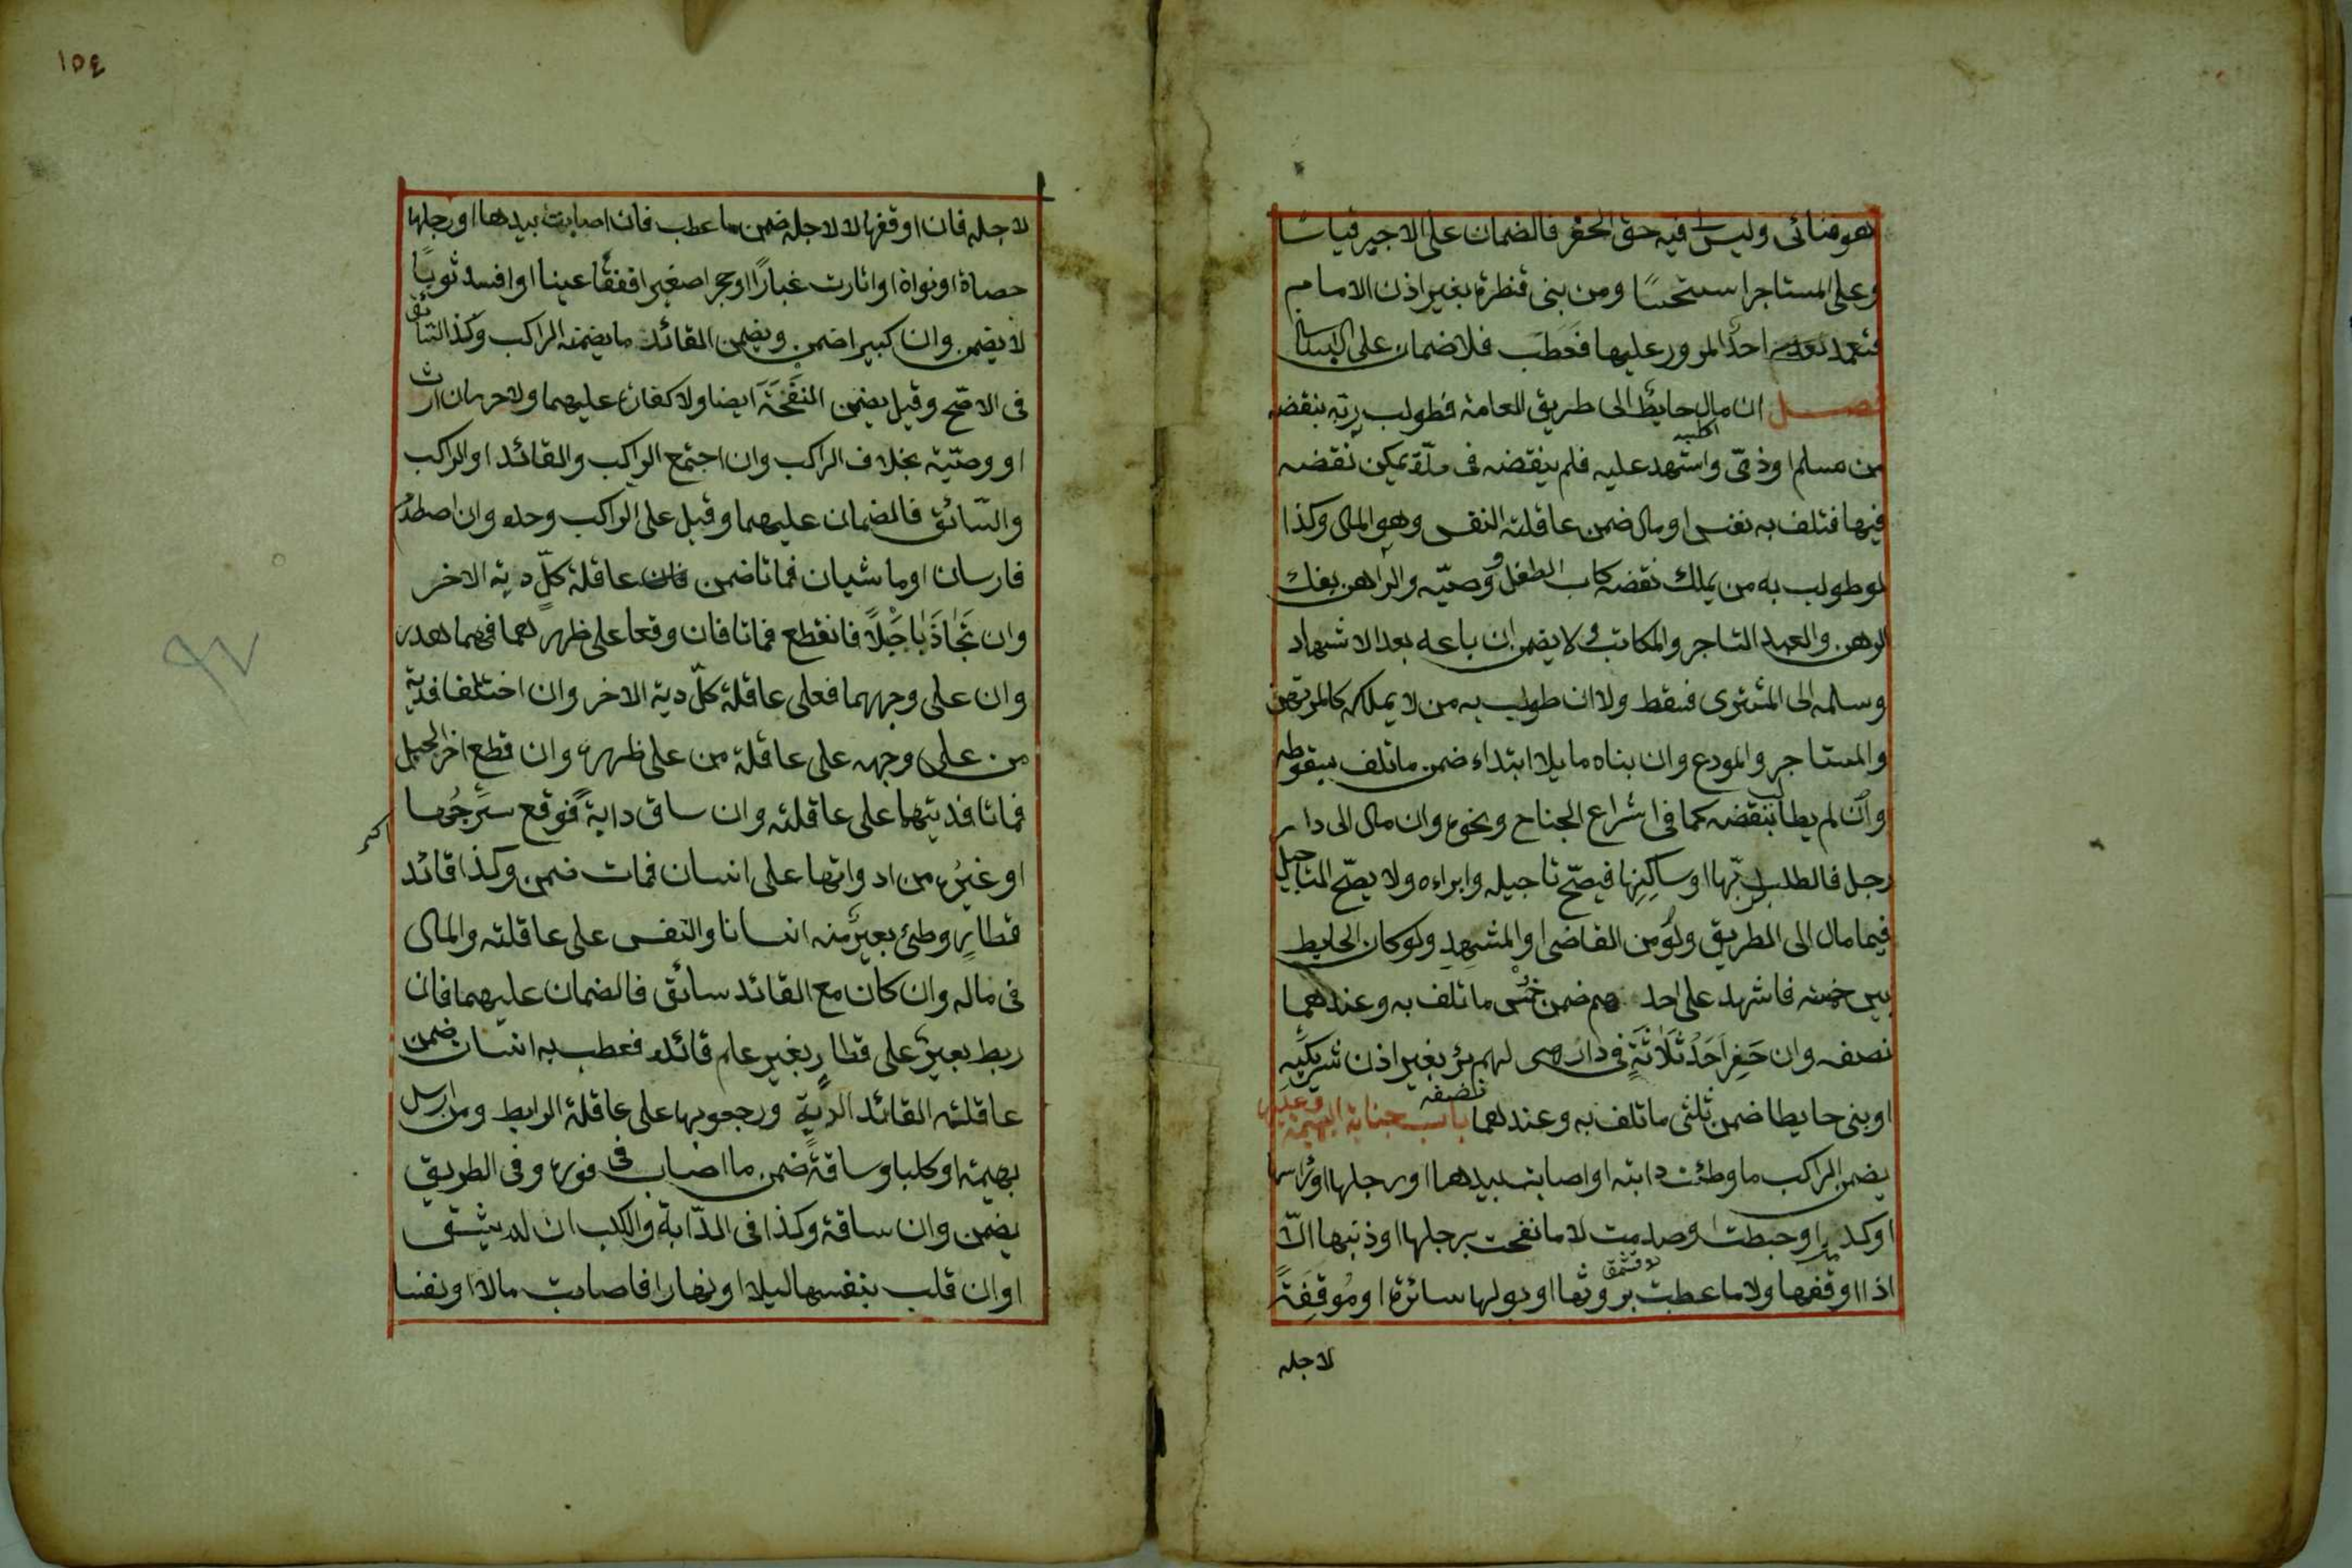 هو فنائى وليس لى فيه حق الحفر فالضمان على الاجير قياسًا
وعلى المستاجر استحسًا ومن بنى قنطرة بغير اذن الامام
فتعمد احدٌ المرور عليها فَعَطَب فلا ضمان على البانى
فصل ان مال حايطٌ الى طريق العامة فطولب ربّه بنقضه
من مسلم او ذمّى واشهد عليه فلم ينقضه فى مدّة يمكن نقضه
فيها فتلف به نفس او مال ضمن عاقلته النفس وهو المال وكذا
لو طولب به من يملك نقضه كاب الطفل ووصيّه والراهن بفك
الرهن والعبد التاجر والمكاتب ولا يضمن ان باعه بعد الاشهاد
وسلمه الى المشترى فسقط ولا ان طولب به من لا يملكه كالمرتهن
والمستاجر والمودع وان بناه مايلا ابتداء ضمن ما تلف بسقوطه
وان لم يطالب بنقضه كما فى اشراع الجناح ونحوه وان مال الى دار
رجل فالطلب لربّها او ساكِنِها فيصّح تاجيله وابراءه ولا يصّح التاجيل
فيما مال الى الطريق ولَو من القاضى او المشهِدِ ولو كان الحايط
بين خمسة فاشهد على احدهم ضمن خُمْس ما تلف به وعندهما
نصفه وان حَفر اَحَدُ ثَلَاثَةٍ فى دار هى لهم بئر بغير اذن شريكَيْه
او بنى حايطا ضمن ثلثى ما تلف به وعندهما نصفه باب جناية البهيمة وعليها
يضمن الراكب ما وطئت دابته او اصابت بيدها او رجلها او راسها
او كدمت او خبطت او صدمت لا ما نفحت برجلها او ذنبها الّا
اذا اوقفها ولا ما عطبت بروثها او بولها سائرة او مُوقِفَةً
لاجله
١٥٤
لاجله فان اوقفها لا لاجله ضمن ما عطب فان اصابت بيدها او رجلها
حصاة او نواة او اثارت غبارًا او حجرا صغيرا ففقأ عينا او افسد ثوبًا
لا يضمن وان كبيرا ضمن ويضمن القائد ما يضمنه الراكب وكذا السائق
فى الاصّح وقيل يضمن النَفْحَةَ ايضا ولا كفارة عليهما ولا حرمان ارث
او وصّية بخلاف الراكب وان اجتمع الراكب والقائد او الراكب
والسّائق فالضمان عليهما وقيل على الراكب وحده وان اصطدم
فارسان او ماشيان فماتا ضمن عاقلة كلٍّ دية الاخر
وان تَجَاذَبا حَبْلًا فانقطع فماتا فان وقعا على ظهرهما فهما هدر
وان على وجههما فعلى عاقلة كلّ دية الاخر وان اختلفا فدية
من على وجهه على عاقلة من على ظهره وان قطع اخر الحبل
فماتا فديتهما على عاقلته وان ساق دابةً فوقع سَرْجُها
او غيرُه من ادواتها على انسان فمات ضمن وكذا قائد
قطارٍ وطئ بعيرٌ منه انسانا والنفس على عاقلته والمال
فى ماله وان كان مع القائد سائق فالضمان عليهما فان
ربط بعيرٌ على قطارٍ بغير علم قائده فعطب به انسان ضمن
عاقلته القائد الديةَ ورجعوا بها على عاقلة الرابط ومن ارسل
بهيمة او كلبا وساقةً ضمن ما اصاب فى فوره وفى الطريق
يضمن وان ساقة وكذا فى الدّابة والكلب ان لم يثسق
او ان قلب بنفسها ليلا او نهارا فاصابت مالا او نفسا
٩٧